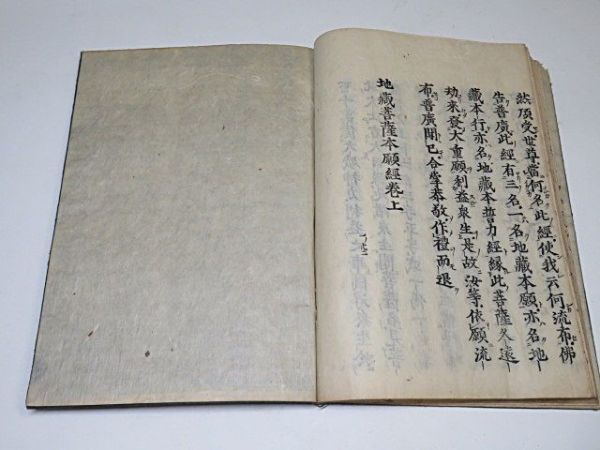 然頂受世尊當何名此經使我云何流布佛
告普廣此經有三名一名地藏本願亦名地
藏本行亦名地藏本誓力經緣此菩薩久遠
劫來發大重願利益衆生是故汝等依願流
布普廣聞已合掌恭敬作禮而退
地藏菩薩本願經卷上